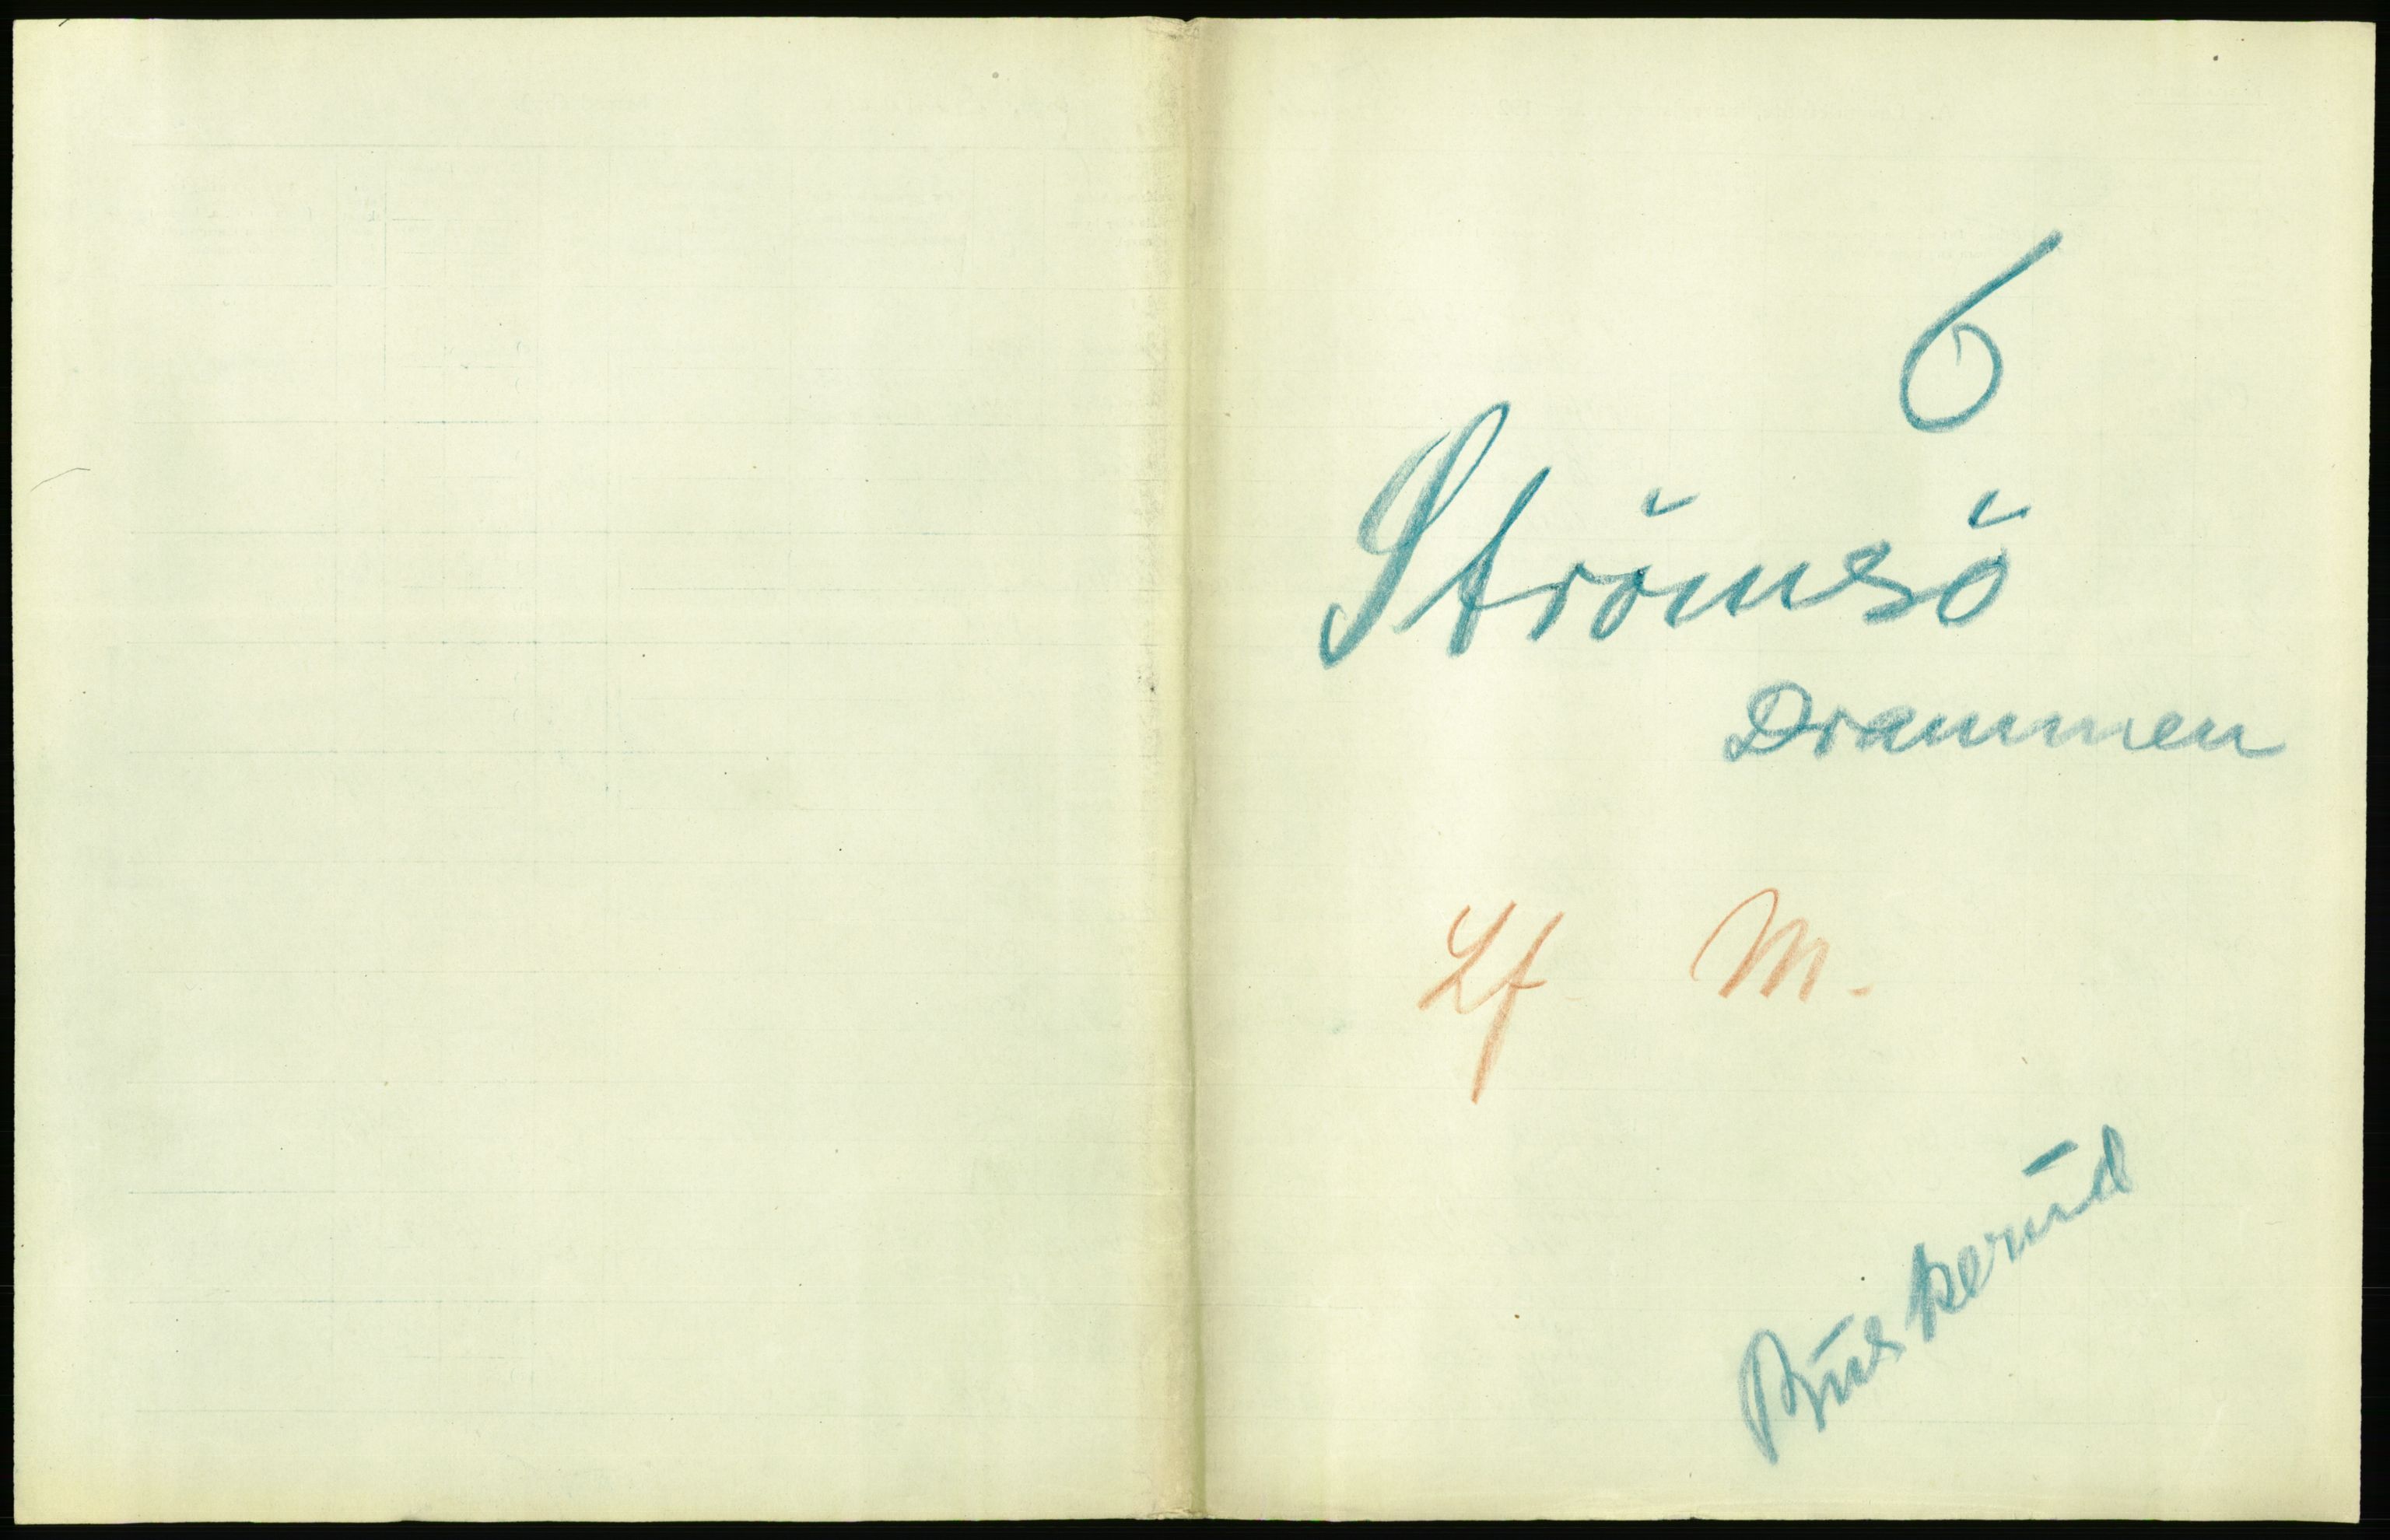 6
Strömsö
Drammen
Lf M.
Buskerud